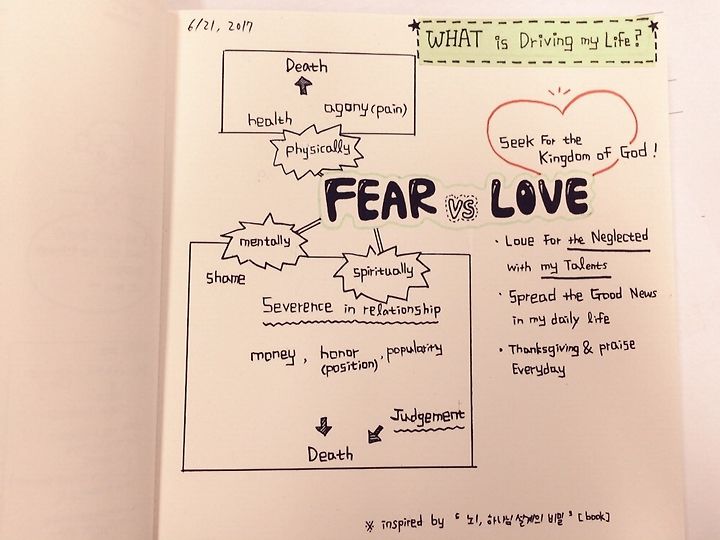 6/21, 2017
WHAT is Driving my Life?
Death
health
agony(pain)
physically
Seek For the
Kingdom of God!
FEAR vs LOVE
mentally
spiritually
shame
Severence in relationship
money, honor, popularity
(position)
Judgement
Death
· Love For the Neglected
with my Talents
· Spread the Good News
in my daily life
· Thanksgiving & praise
Everyday
※ inspired by "뇌, 하나님 설계의 비밀" [book]